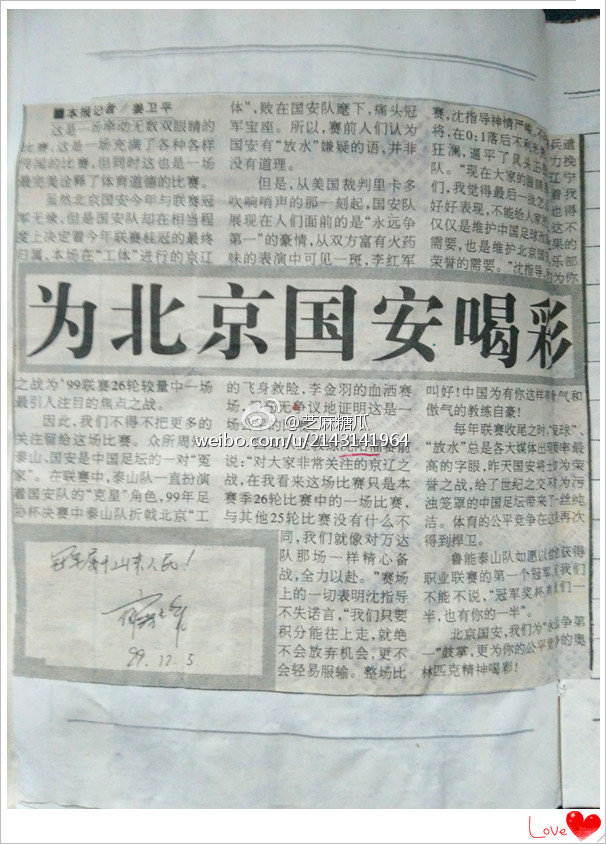 ■本报记者/姜卫平
这是一场牵动无数双眼睛的
比赛,这是一场充满了各种各样
传闻的比赛,但同时这也是一场
最完美诠释了体育道德的比赛。
虽然北京国安今年与联赛冠
军无缘,但是国安队却在相当程
度上决定着今年联赛桂冠的最终
归属,本场在“工体”进行的京辽
为北京国安喝彩
之战为’99联赛26轮较量中一场
最引人注目的焦点之战。
因此,我们不得不把更多的
关注留给这场比赛。众所周知,
泰山、国安是中国足坛的一对“冤
家”。在联赛中,泰山队一直扮演
着国安队的“克星”角色,99年足
协杯决赛中泰山队折戟北京“工
体”,败在国安队麾下,痛失冠
军宝座。所以,赛前人们认为
国安有“放水”嫌疑的话,并非
没有道理。
但是,从美国裁判里卡多
吹响哨声的那一刻起,国安队
展现在人们面前的是“永远争
第一”的豪情,从双方富有火药
味的表演中可见一斑,李红军
的飞身救险,李金羽的血洒赛
场,
无争议地证明这是一
前
说:“对大家非常关注的京辽之
战,在我看来这场比赛只是本
赛季26轮比赛中的一场比赛,
与其他25轮比赛没有什么不
同,我们就像对万达
队那场一样精心备
战,全力以赴。”赛场
上的一切表明沈指导
不失诺言,“我们只要
积分能往上走,就绝
不会放弃机会,更不
会轻易服输。整场比
赛,沈指导神情严峻,
将,在0:1落后不利
狂澜,逼平了风头正
队。“现在大家的眼睛
们,我觉得最后一战
好好表现,不能给人家
仅仅是维护中国足球
需要,也是维护北京国
荣誉的需要。”沈指导,
叫好!中国为有你这样有骨气和
傲气的教练自豪!
每年联赛收尾之时,“假球”、
“放水”总是各大媒体出现频率最
高的字眼,昨天国安将士如为荣
誉之战,给了世纪之交不为污
浊笼罩的中国足坛带来了一丝纯
洁。体育的公平竞争在这里再次
得到捍卫。
鲁能泰山队如愿以偿地获得
职业联赛的第一个冠军,
不能不说,“冠军奖杯有我们一
半,也有你的一半”。
北京国安,我们为“永远争第
一”鼓掌,更为你的公平竞争的奥
林匹克精神喝彩!
冠军属于山东人民!
99.12.5
@芝麻糖瓜
weibo.com/u/2143141964
Love